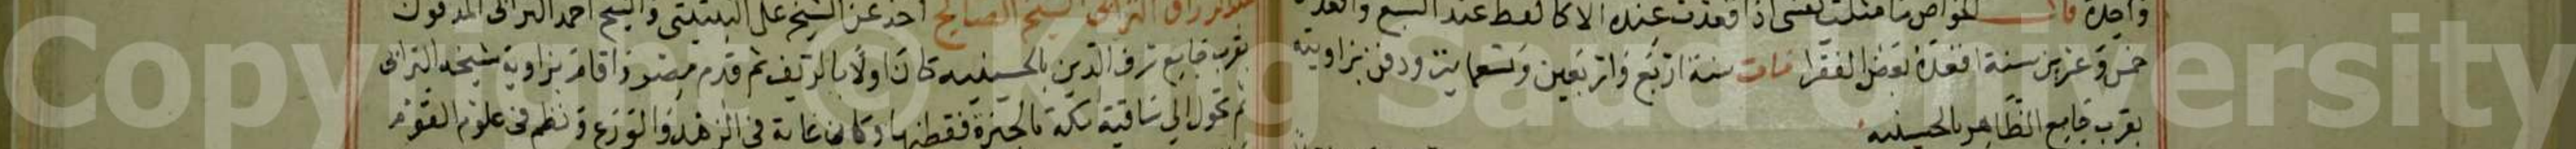 واحدة قال الخواص ما مثلت نفسى اذا قعدت عنده الا كالقط عند السبع واقعد
خمس وعزين سنة اقعده بعض الفقرا مات سنة اربع واربعين وتسعماية ودفن بزاويته
بقرب جامع الظاهر بالحسينيه
عبد الرزاق الترابى الشيخ الصالح اخذ عن الشيخ على النبتيتى والشيخ احمد الترابى المدفون
بقرب جامع شرف الدين بالحسينيه كان اولا بالريف ثم قدم مصر واقام بزاوية شيخه الترابى
ثم تحول الى ساقية مكة بالجيزة فقطنها وكان غاية فى الزهد والتورع ونظم فى علوم القوم
Copyright © King Saud University